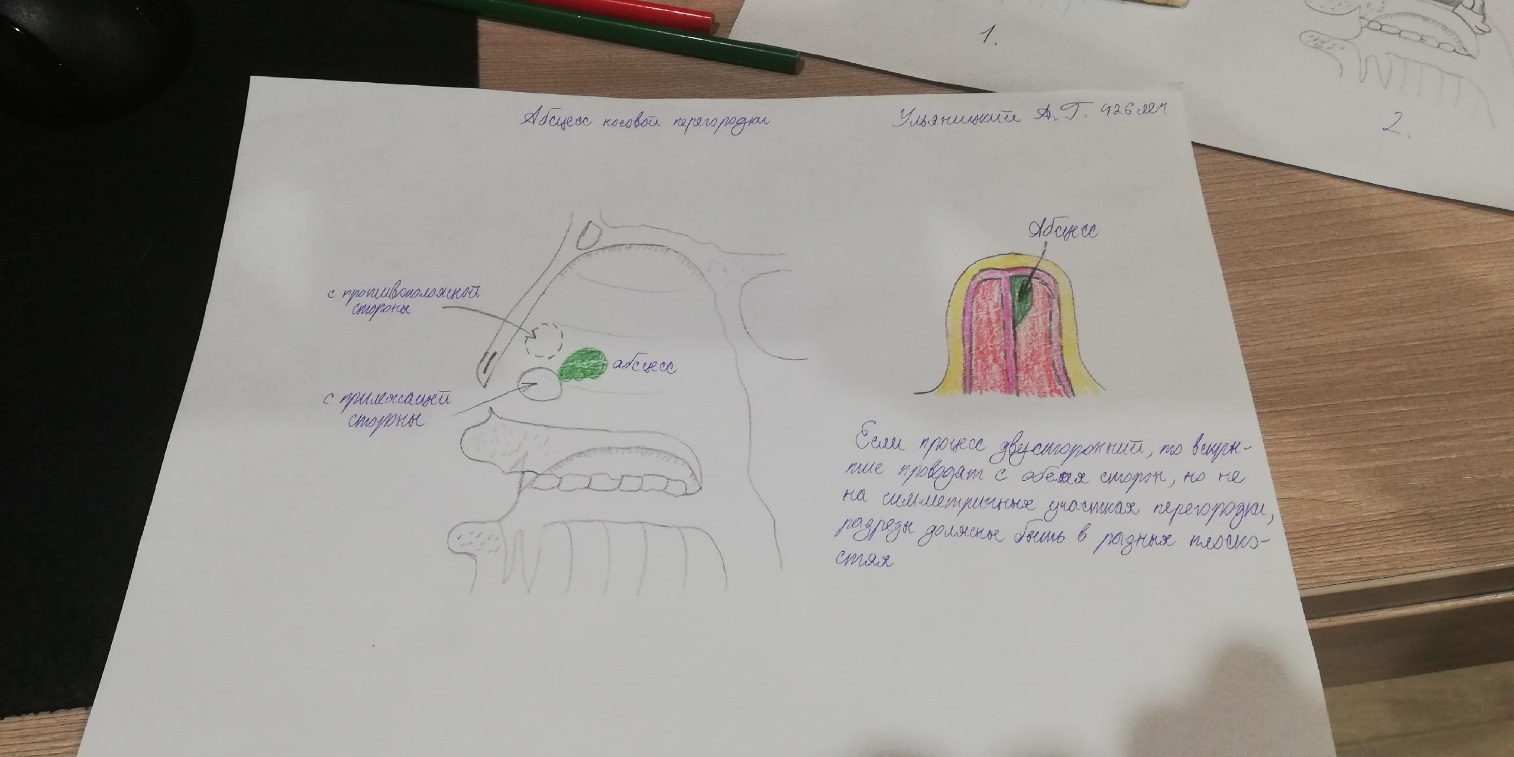 Абсцесс носовой перегородки
Ульяницкий А.Г. 426
1.
2.
Абсцесс
с противоположной
стороны
абсцесс
с прилежащей
стороны
Если процесс двусторонний, то вскры-
тие проводят с обеих сторон, но не
на симметричных участках перегородки,
разрезы должны быть в разных плоско-
стях